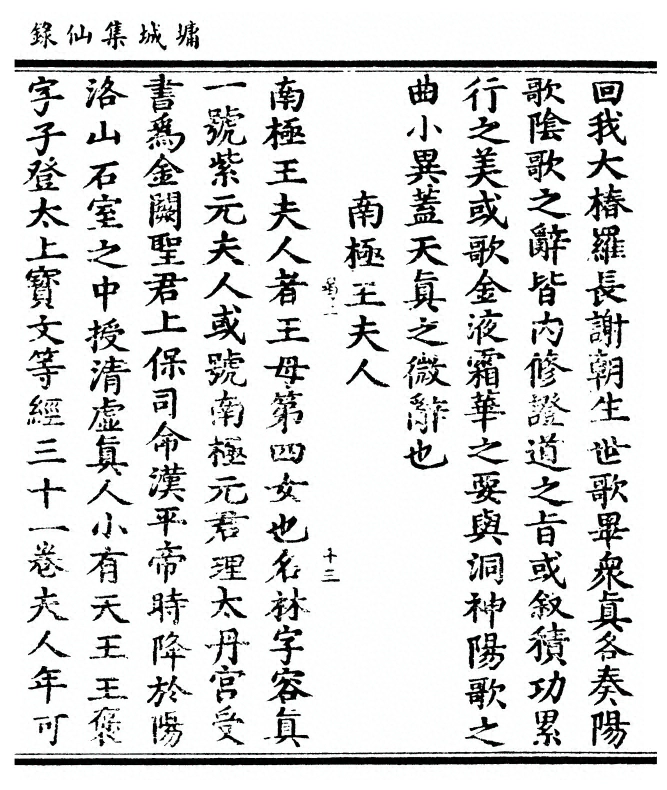 墉城集仙錄
回我大椿羅長謝朝生世歌畢衆眞各奏陽
歌陰歌之辭皆內修證道之旨或敘積功累
行之美或歌金液霜華之要與洞神陽歌之
曲小異蓋天眞之微辭也
南極王夫人
南極王夫人者王母第四女也名林字容眞
一號紫元夫人或號南極元君理太丹宮受
書爲金闕聖君上保司命漢平帝時降於陽
洛山石室之中授清虛眞人小有天王王褒
字子登太上寶文等經三十一卷夫人年可